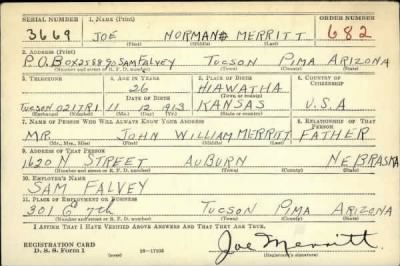 SERIAL NUMBER 1. NAME (Print) ORDER NUMBER
3669 JOE NORMAN MERRITT 682
(First) (Middle) (Last)
2. ADDRESS (Print)
P.O. BOX 2588 % SAM FALVEY TUCSON PIMA ARIZONA
(Number and street or R. F. D. number) (Town) (County) (State)
3. TELEPHONE 4. AGE IN YEARS 5. PLACE OF BIRTH 6. COUNTRY OF CITIZENSHIP
26 HIAWATHA
DATE OF BIRTH (Town or county)
TUCSON 0217R1 11 12 1913 KANSAS U.S.A
(Exchange) (Number) (Mo.) (Day) (Yr.) (State or country)
7. NAME OF PERSON WHO WILL ALWAYS KNOW YOUR ADDRESS 8. RELATIONSHIP OF THAT PERSON
MR. JOHN WILLIAM MERRITT FATHER
(Mr., Mrs., Miss) (First) (Middle) (Last)
9. ADDRESS OF THAT PERSON
1620 N STREET AUBURN NEBRASKA
(Number and street or R. F. D. number) (Town) (County) (State)
10. EMPLOYER'S NAME
SAM FALVEY
11. PLACE OF EMPLOYMENT OR BUSINESS
301 E 7th TUCSON PIMA ARIZONA
(Number and street or R. F. D. number) (Town) (County) (State)
I AFFIRM THAT I HAVE VERIFIED ABOVE ANSWERS AND THAT THEY ARE TRUE.
REGISTRATION CARD
D. S. S. Form 1 (over) 16—17105
Joe Merritt.